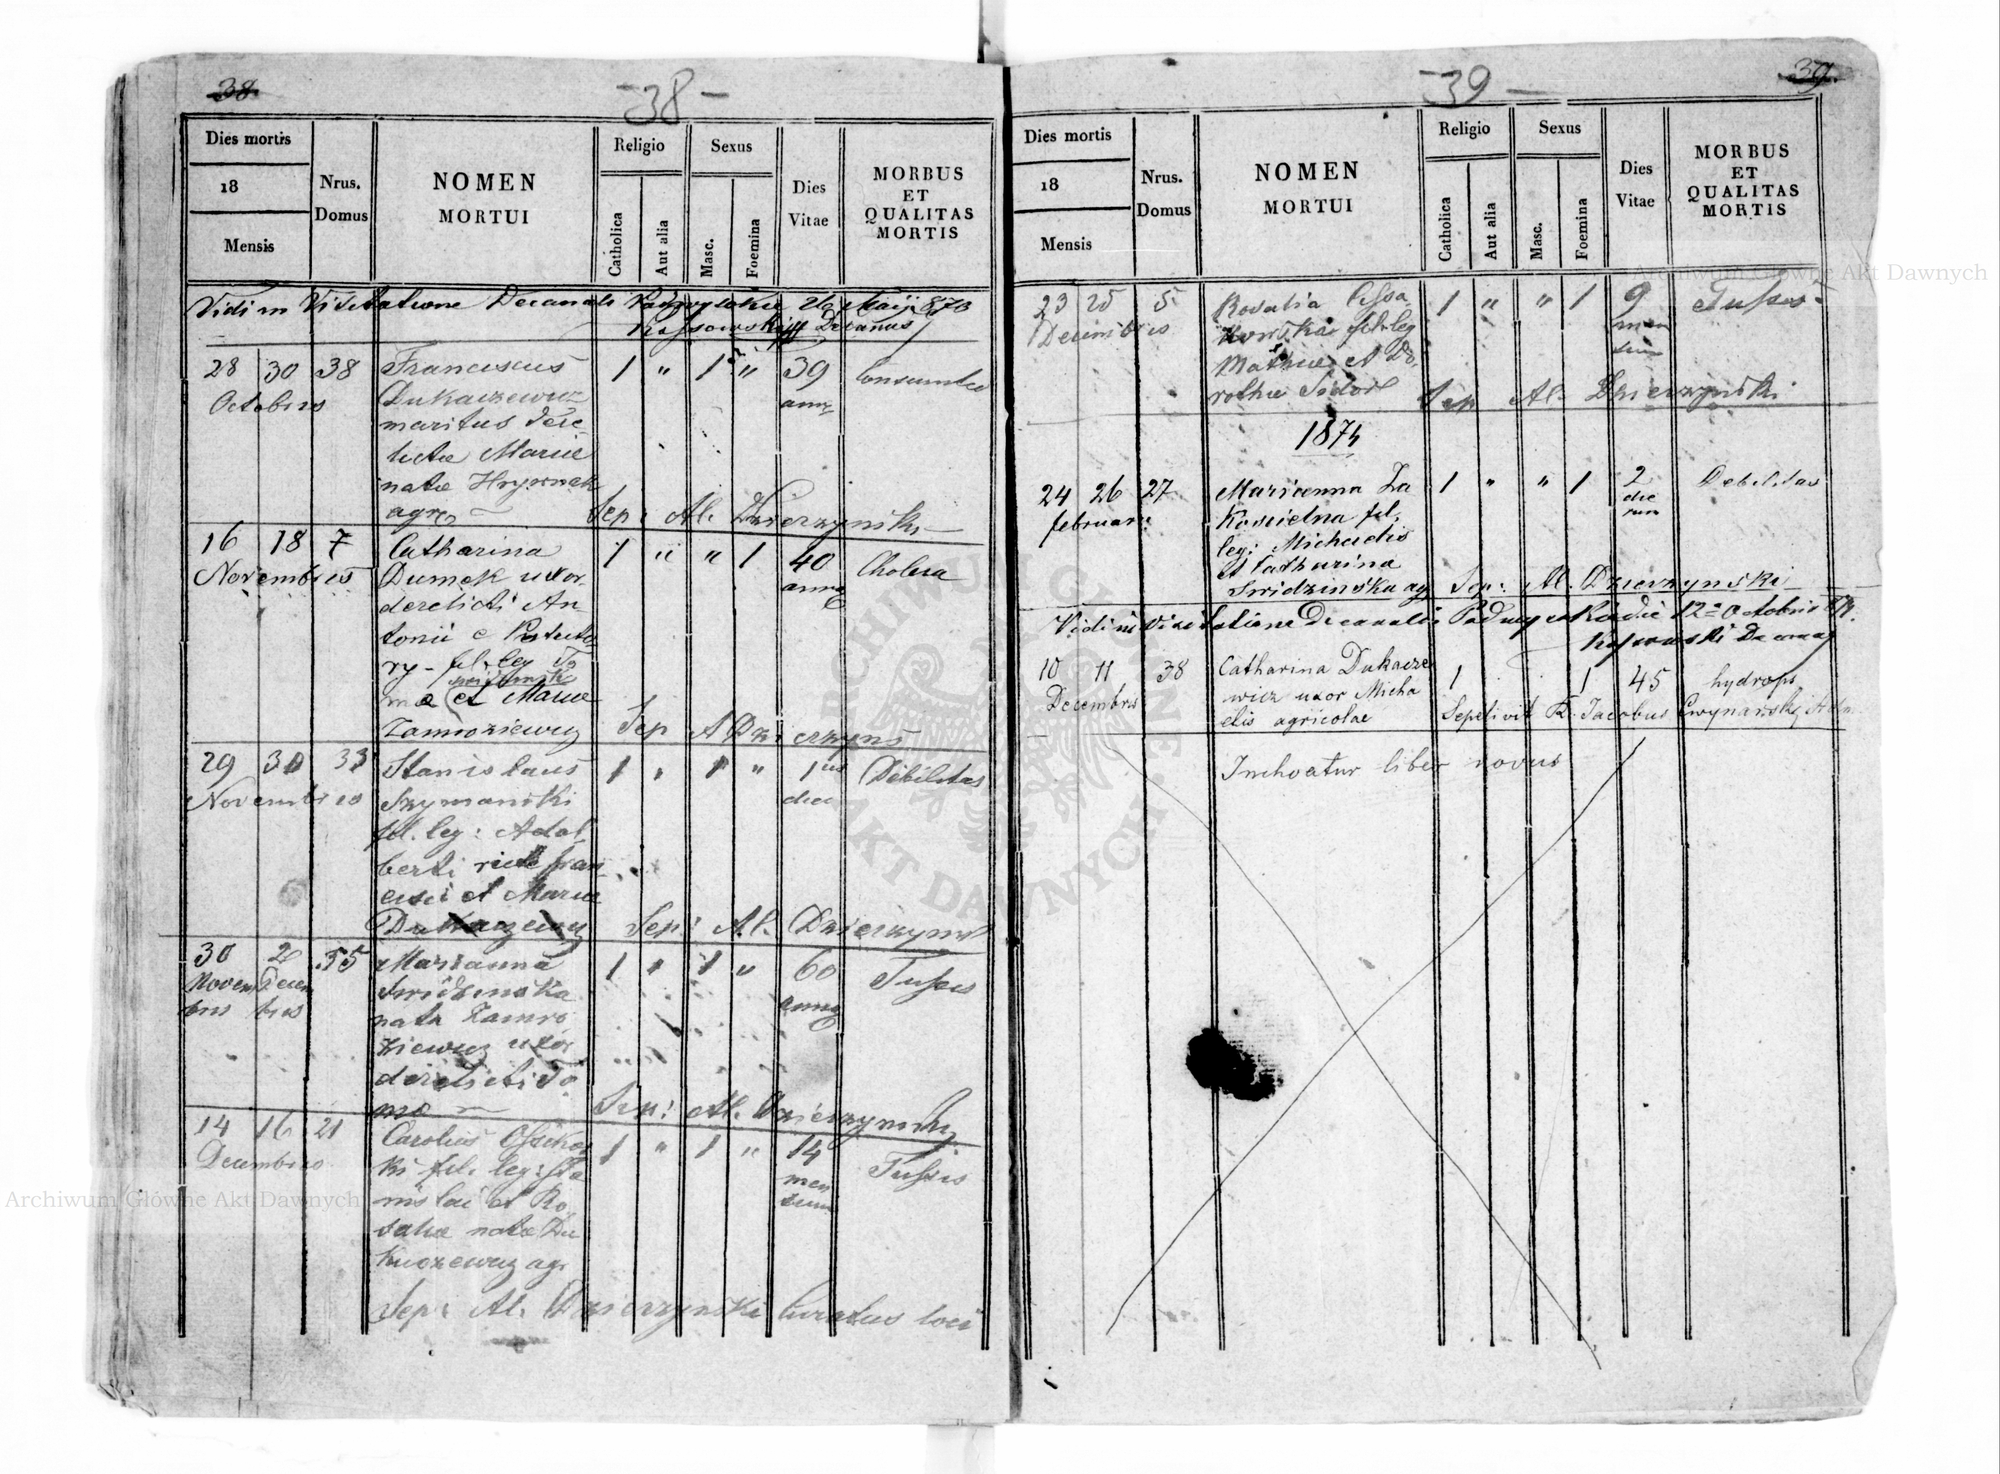 38
- 38 -
Dies mortis
18
Mensis
Nrus.
Domus
NOMEN
MORTUI
Religio
Catholica
Aut alia
Sexus
Masc.
Foemina
Dies
Vitae
MORBUS
ET
QUALITAS
MORTIS
Vidi in Visitatione Decanali 26 Maij 873
Kossowski Decanus
28 30 38 Franciscus 1 " 1 " 39
Octobris Dukaczewicz
maritus dere-
lictae Mariae
natae Hrywnak
Sep: Al. Dzierzynski
16 18 7 Catharina 1 " " 1 40 Cholera
Novembris Dumek uxor
derelicti An-
tonii
fil. leg To
mae et Mariae
Zamroziewicz
Sep A Dzierzyns
29 30 33 Stanislaus 1 " 1 " 1 Debilitas
Novembris Szymanski
fil. leg: Adal
berti
et Mariae
Dukaczewicz Sep: Al. Dzierzynski
30 2 35 Marianna 1 " 1 " 60 Tussis
Novem Decem Swidzinska
bris bris nata Zamro
ziewicz uxor
derelicti To
mae
Sep: Al. Dzierzynski
14 16 21 Carolus 1 " 1 " 14 Tussis
Decembris fil. leg: Sta
nislai et Ro
saliae natae Du
kaczewicz agr
Sep: Al. Dzierzynski Curatus loci
39
- 39 -
Dies mortis
18
Mensis
Nrus.
Domus
NOMEN
MORTUI
Religio
Catholica
Aut alia
Sexus
Masc.
Foemina
Dies
Vitae
MORBUS
ET
QUALITAS
MORTIS
23 25 5 Rosalia 1 " " 1 9 Tussis
Decembris fil. leg
Mathiae et Do
rothae Sidor Sep Al. Dzierzynski
1874
24 26 27 Marianna Za 1 " " 1 2 Debilitas
februarii koscielna fil. die
leg: Michaelis rum
et Catharina
Swidzinska agr Sep: Al. Dzierzynski
Vidi in Visitatione Decanali die 12 Octobris
Kossowski Decanus
10 11 38 Catharina Dukacze 1 1 45 hydrops
Decembris wicz uxor Micha
elis agricolae Sepelivit X. Jacobus
Inchoatur liber novus
Archiwum Główne Akt Dawnych
Archiwum Główne Akt Dawnych
ARCHIWUM GŁÓWNE
AKT DAWNYCH